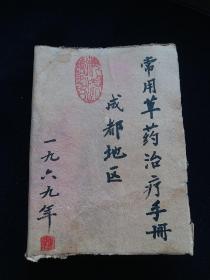 常用草药治疗手册
成都地区
一九六九年